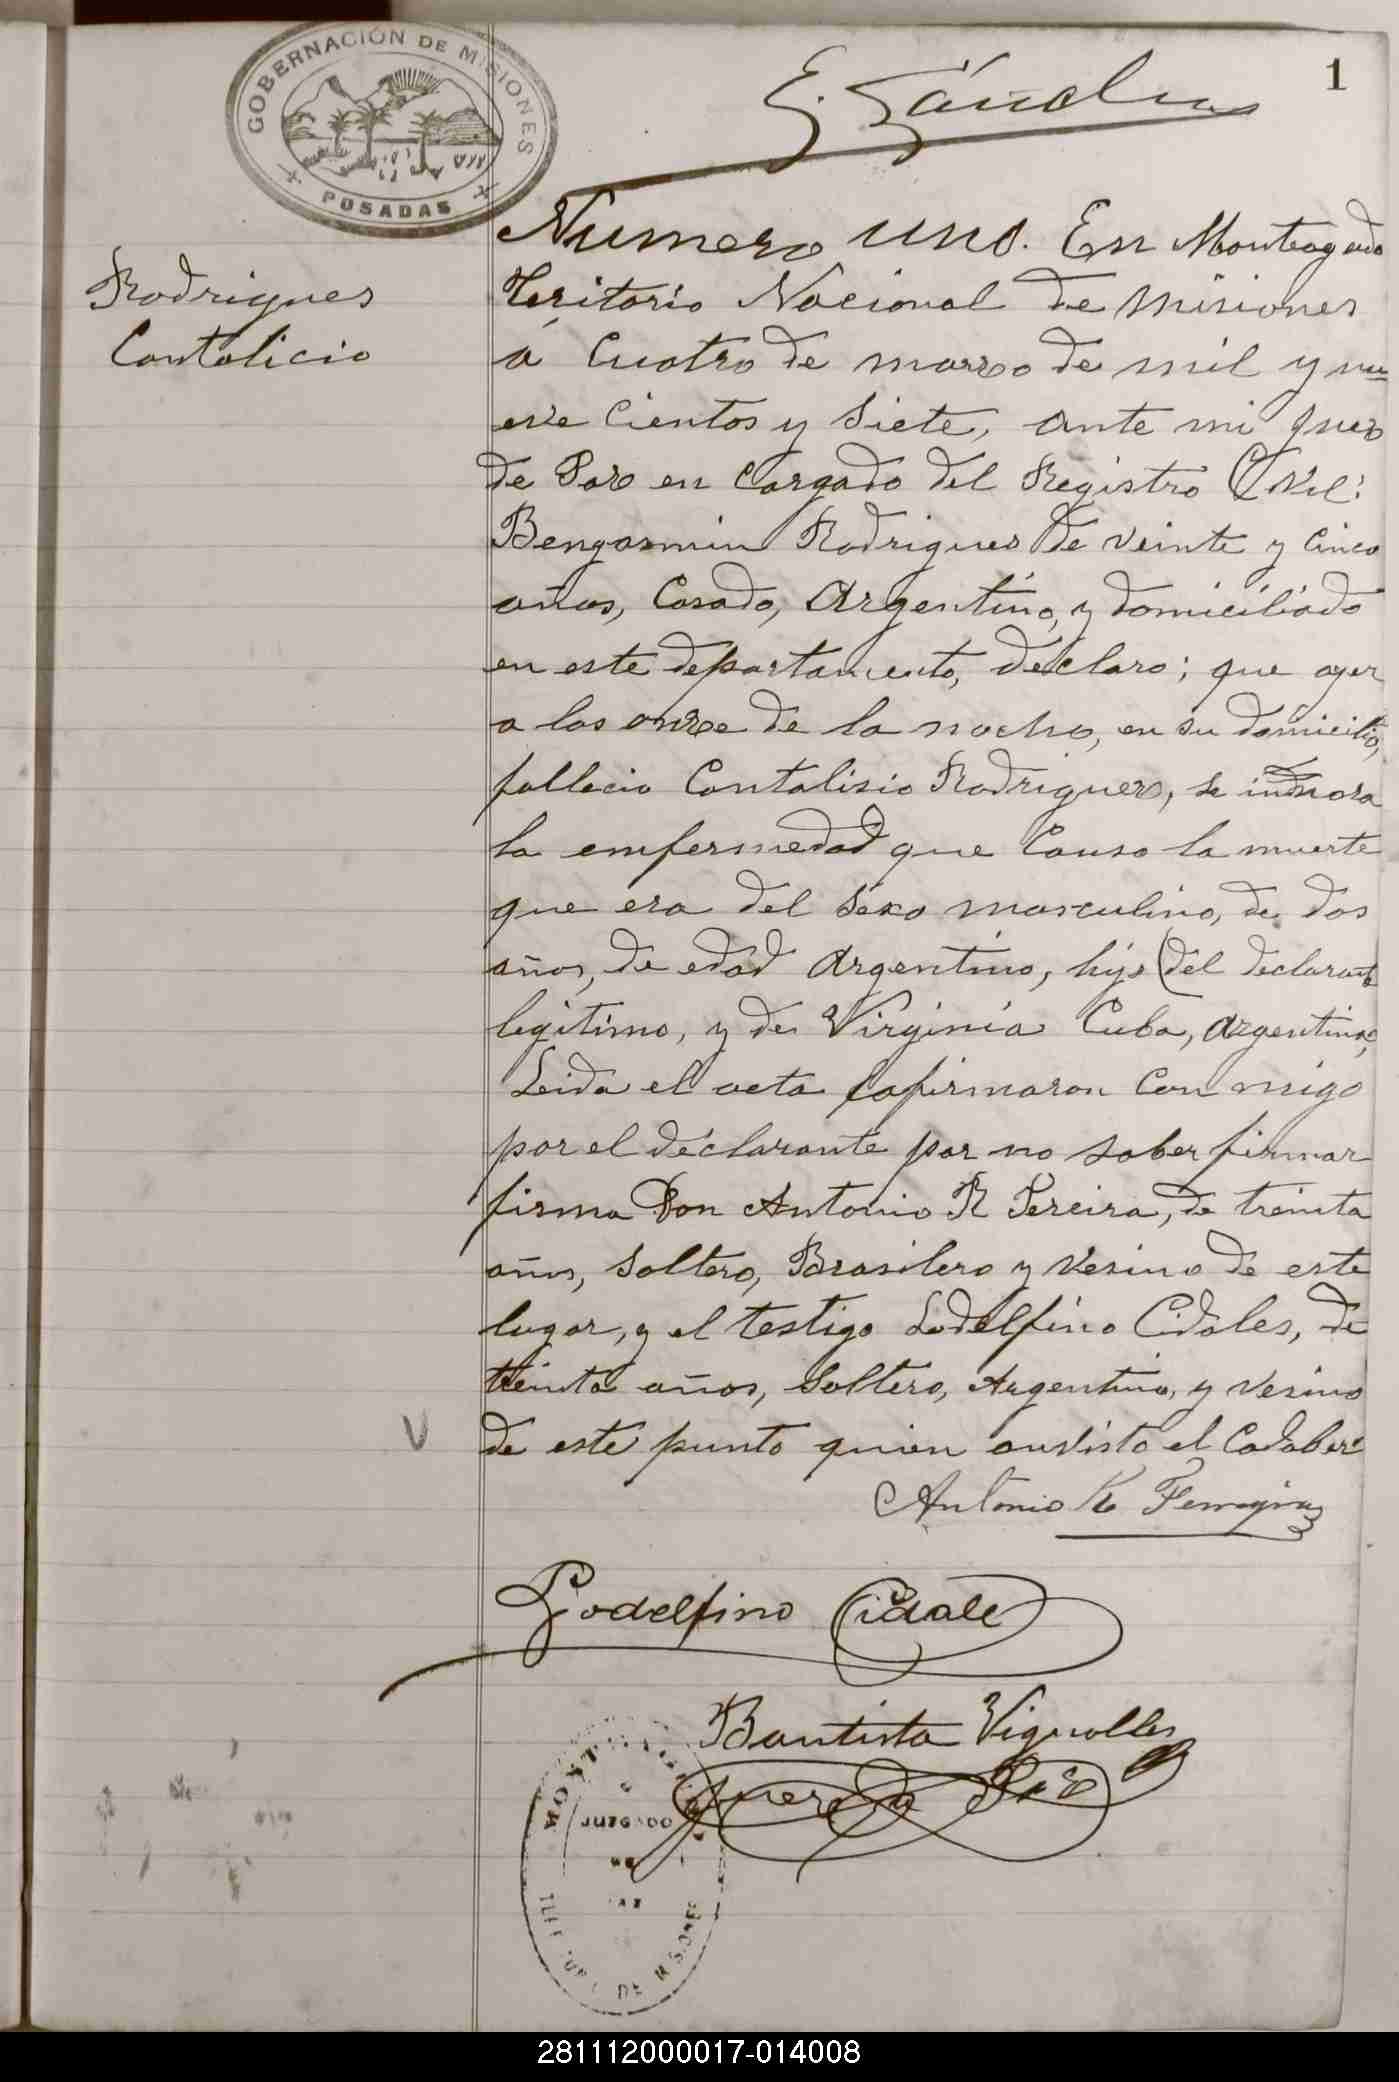 GOBERNACIÓN DE MISIONES
POSADAS
E. Sánches
1
Rodrigues
Cantalicio
Numero uno. En Monteagudo
Teritorio Nacional de Misiones
á Cuatro de marzo de mil y nu
eve Cientos y Siete, ante mi Juez
de Paz en cargado del Registro Civil:
Bengasmin Rodrigues de veinte y Cinco
años, Casado, Argentino, y domiciliado
en este departamento, declaro; que ayer
a las onze de la noche, en su domicilio,
fallecio Cantalisio Rodriguez, se
la emfermedad que Causo la muerte
que era del Sexo masculino, de dos
años, de edad Argentino, hijo del declarante
legitimo, y de Virginia Cuba, Argentina,
Leida el acta lafirmaron Con migo
por el declarante por no saber firmar
firma Don Antonio R Pereira, de treinta
años, Soltero, Brasilero y Vesino de este
lugar, y el testigo Lodelfino Cidales, de
treinta años, Soltero, Argentino, y Vesino
de este punto quien anvisto el Cadaber
Antonio R Ferreyra
Godelfino Cidale
Bautista Vignolles
Juez de Paz
JUZGADO
DE MISIONES
281112000017-014008